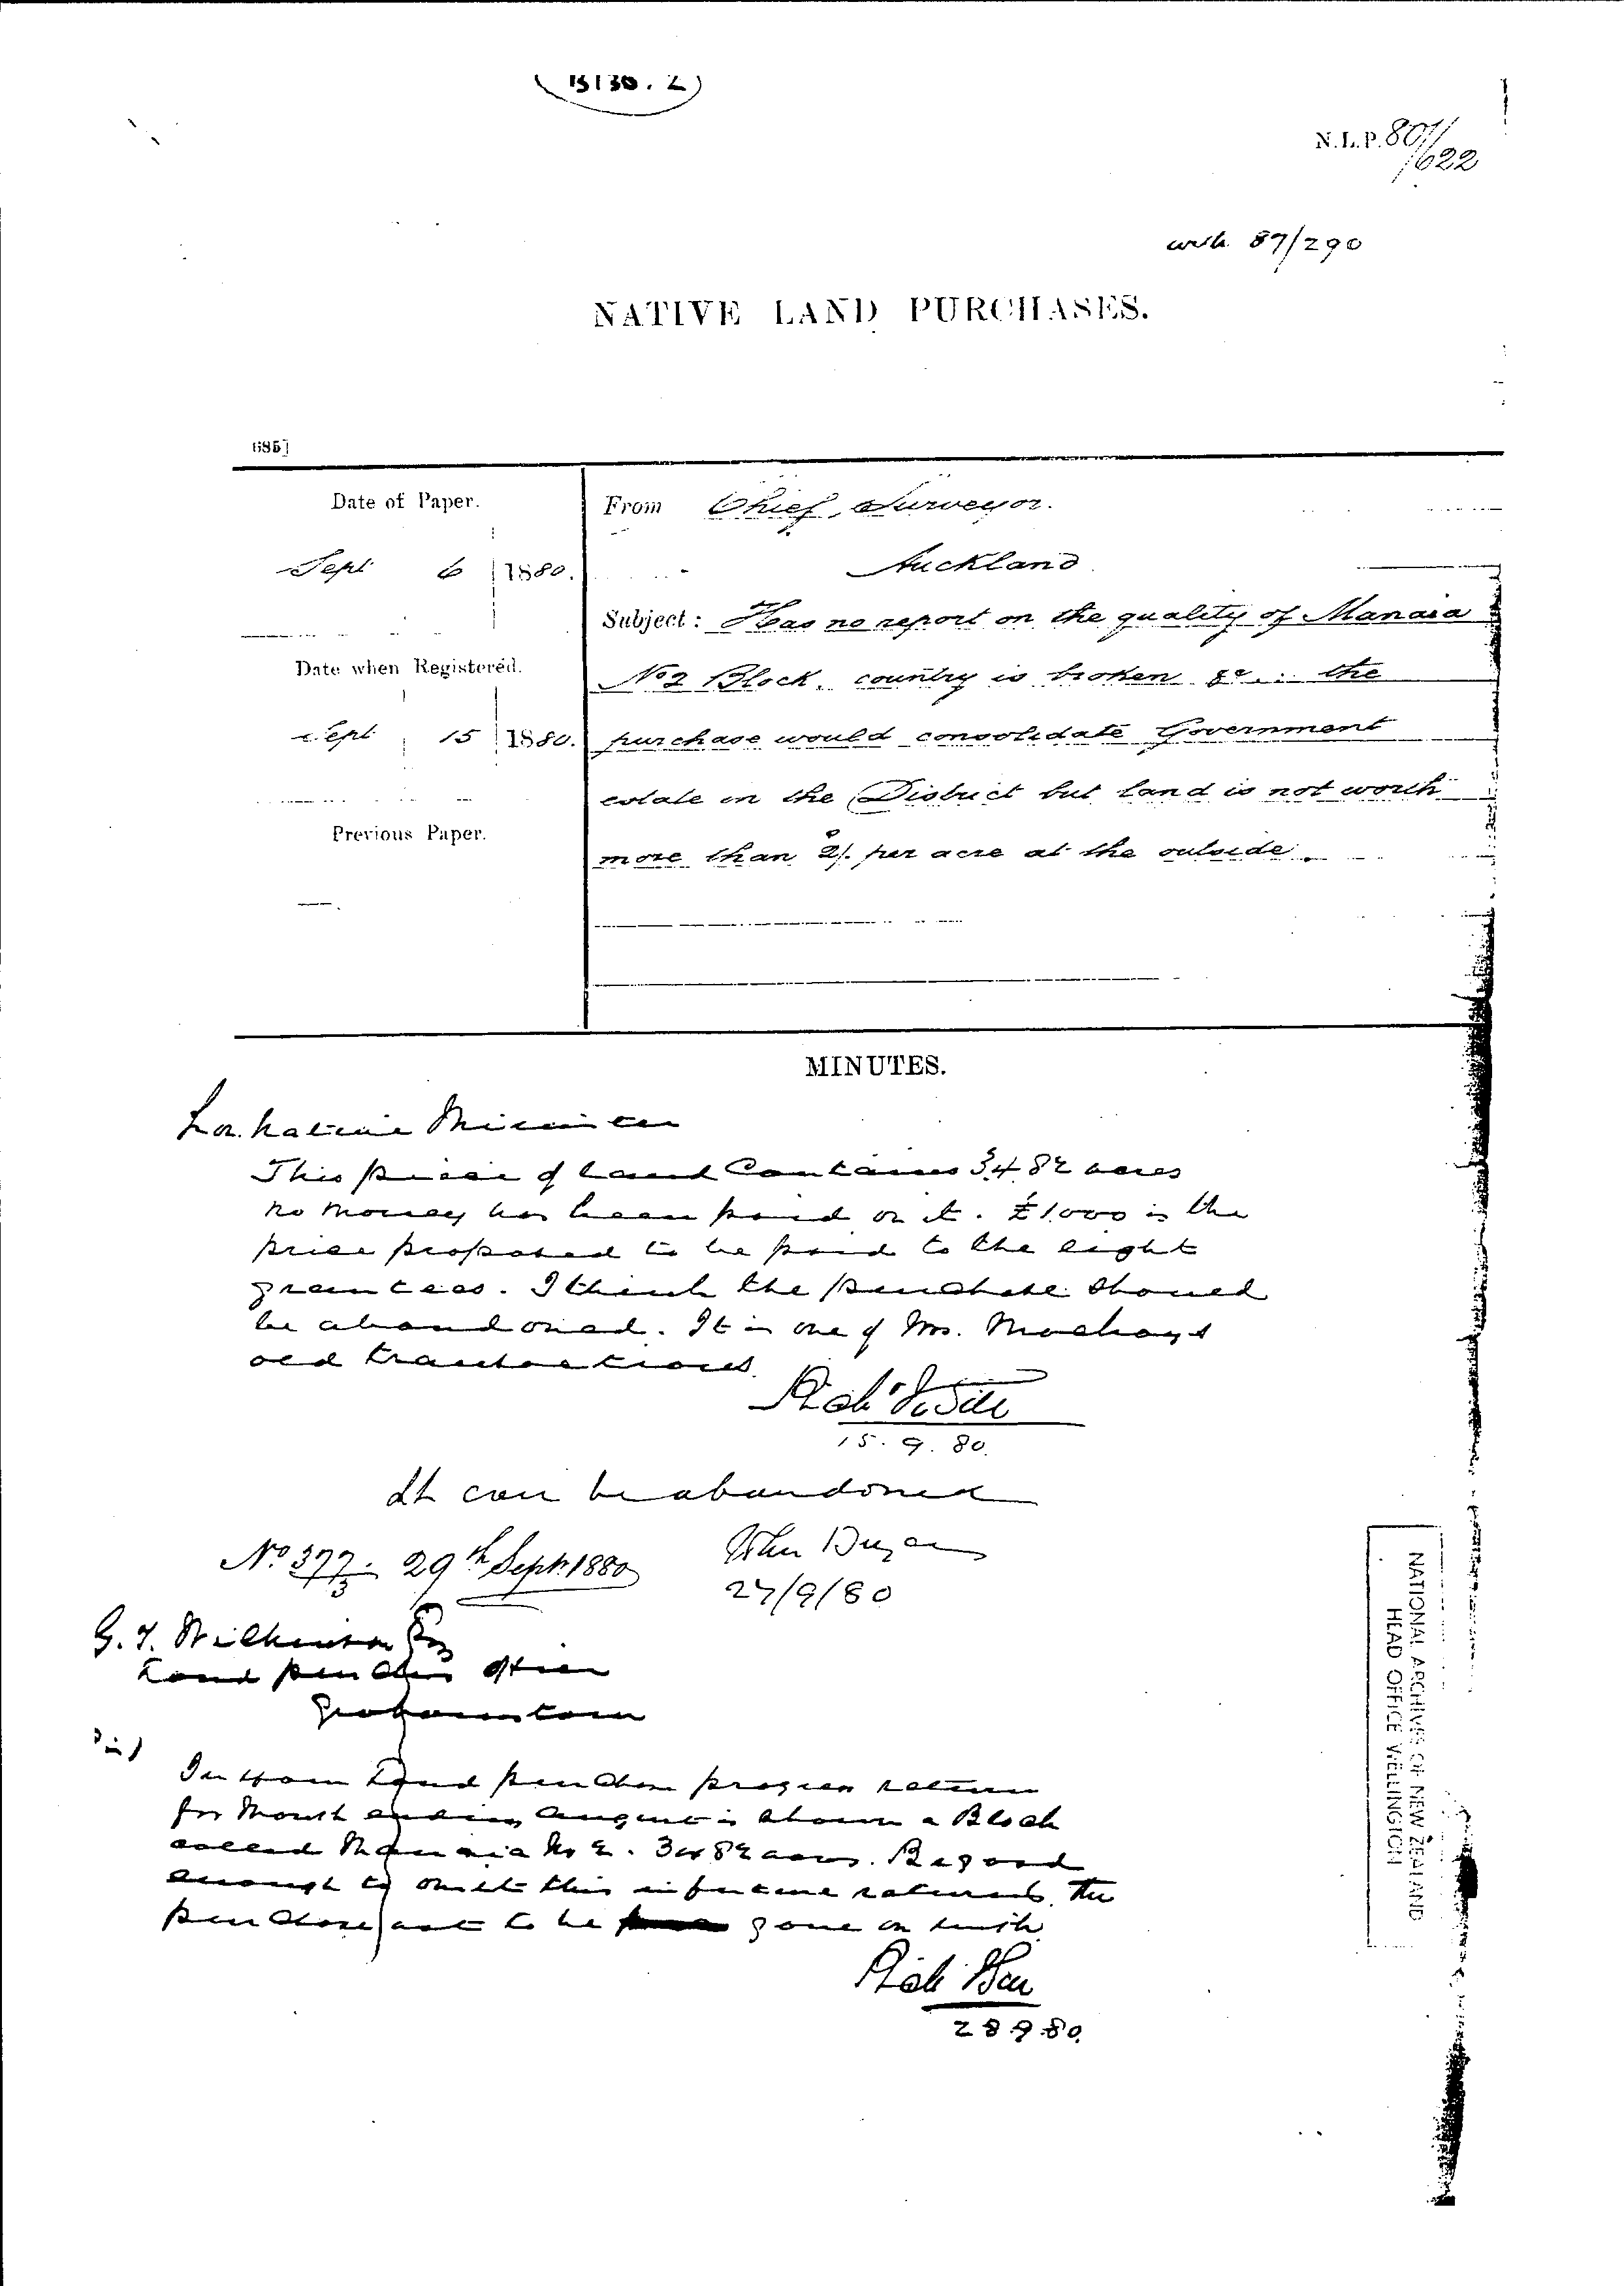 (B130.2)
N.L.P. 80/622
with 87/290
NATIVE LAND PURCHASES.
685]
Date of Paper.
Sept 6 1880.
Date when Registered.
Sept 15 1880.
Previous Paper.
From Chief Surveyor.
Auckland
Subject: Has no report on the quality of Manaia
No 2 Block, country is broken &c. the
purchase would consolidate Government
estate in the District but land is not worth
more than 2/. per acre at the outside
MINUTES.
Hon. Native Minister
This piece of Land Contains 3482 acres
no money has been paid on it. £1000 is the
price proposed to be paid to the eight
grantees. I think the purchase should
be abandoned. It is one of Mr. Mackay's
old transactions.
15.9.80.
It can be abandoned
John Bryce
27/9/80
No 377/3 29th Sept. 1880
G. T. Wilkinson Esq
Land purchase officer
Grahamstown
Sir)
In your Land purchase progress return
for Month ending August is shown a Block
called Manaia No 2. 3482 acres. Be good
enough to omit this in future returns. The
purchase not to be gone on with.
28.9.80.
NATIONAL ARCHIVES OF NEW ZEALAND
HEAD OFFICE WELLINGTON